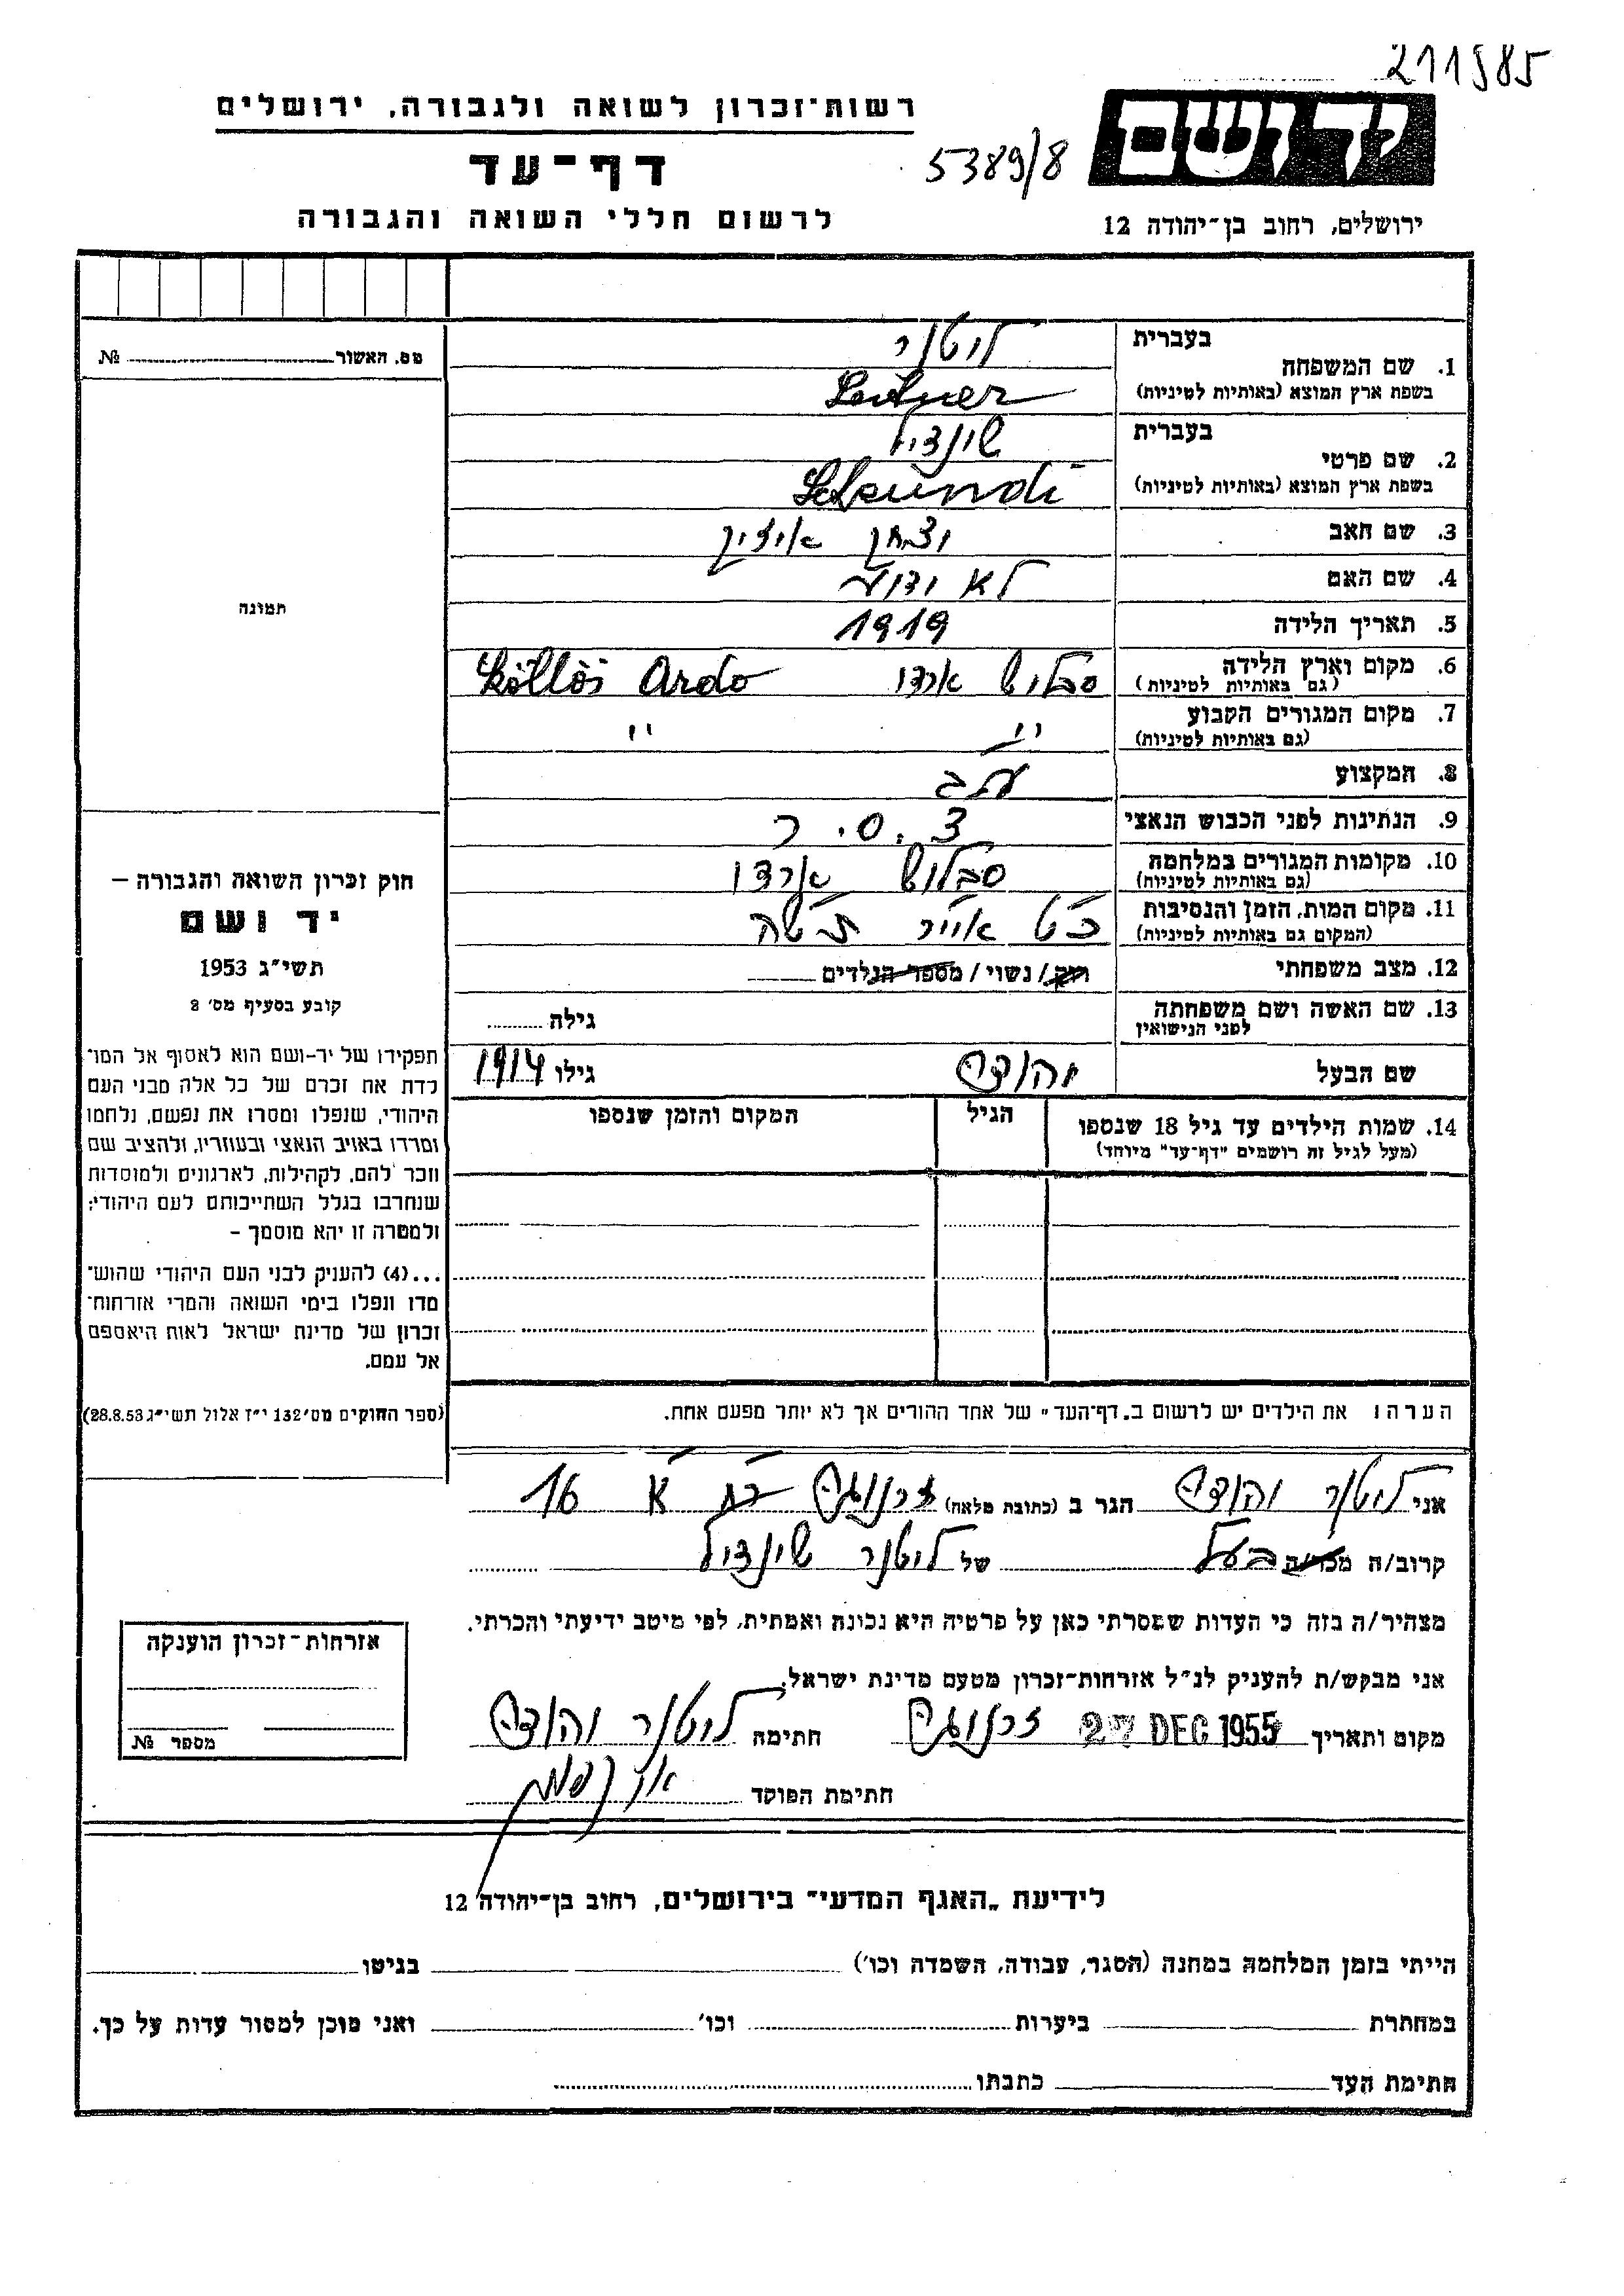 211985
רשות-זכרון לשואה ולגבורה, ירושלים
יד ושם
5389/8
דף-עד
לרשום חללי השואה והגבורה
ירושלים, רחוב בן-יהודה 12
מס. האשור № 
תמונה
1. שם המשפחה
בעברית
ליטנר
בשפת ארץ המוצא (באותיות לטיניות)
Leitner
2. שם פרטי
בעברית
שינדיל
בשפת ארץ המוצא (באותיות לטיניות)
3. שם האב
יצחק אייזיק
4. שם האם
לא ידוע
5. תאריך הלידה
1919
6. מקום וארץ הלידה
(גם באותיות לטיניות)
סבלוש ארדו Szöllös Ardo
7. מקום המגורים הקבוע
(גם באותיות לטיניות)
״ ״
8. המקצוע
עקב
9. הנתינות לפני הכבוש הנאצי
צ.ס.ר
10. מקומות המגורים במלחמה
(גם באותיות לטיניות)
סבלוש ארדו
11. מקום המות, הזמן והנסיבות
(המקום גם באותיות לטיניות)
אייר תשה
12. מצב משפחתי
רוק/ נשוי / מספר הילדים
13. שם האשה ושם משפחתה
לפני הנישואין
גילה
שם הבעל
יהודה
גילו 1914
14. שמות הילדים עד גיל 18 שנספו
(מעל לגיל זה רושמים "דף-עד" מיוחד)
הגיל
המקום והזמן שנספו
חוק זכרון השואה והגבורה –
יד ושם
תשי״ג 1953
קובע בסעיף מס׳ 2
תפקידו של יד-ושם הוא לאסוף אל המו־
לדת את זכרם של כל אלה מבני העם
היהודי, שנפלו ומסרו את נפשם, נלחמו
ומרדו באויב הנאצי ובעוזריו, ולהציב שם
וזכר להם, לקהילות, לארגונים ולמוסדות
שנחרבו בגלל השתייכותם לעם היהודי;
ולמטרה זו יהא מוסמך –
...(4) להעניק לבני העם היהודי שהוש־
מדו ונפלו בימי השואה והמרי אזרחות־
זכרון של מדינת ישראל לאות היאספם
אל עמם.
(ספר החוקים מס׳ 132 י״ז אלול תשי״ג 28.8.53)
הערה: את הילדים יש לרשום ב„דף-העד" של אחד ההורים אך לא יותר מפעם אחת.
אני ליטנר יהודה הגר ב (כתובת מלאה) זרנוגה 16
קרוב/ה מכר/ה בעל של ליטנר שינדיל
מצהיר/ה בזה כי העדות שמסרתי כאן על פרטיה היא נכונה ואמתית, לפי מיטב ידיעתי והכרתי.
אני מבקש/ת להעניק לנ״ל אזרחות-זכרון מטעם מדינת ישראל.
מקום ותאריך 27 DEC 1955 זרנוגה חתימה ליטנר יהודה
חתימת הפוקד
אזרחות-זכרון הוענקה
מספר №
לידיעת „האגף המדעי" בירושלים, רחוב בן-יהודה 12
הייתי בזמן המלחמה במחנה (הסגר, עבודה, השמדה וכו׳) בגיטו
במחתרת ביערות וכו׳ ואני מוכן למסור עדות על כך.
חתימת העד כתבתו